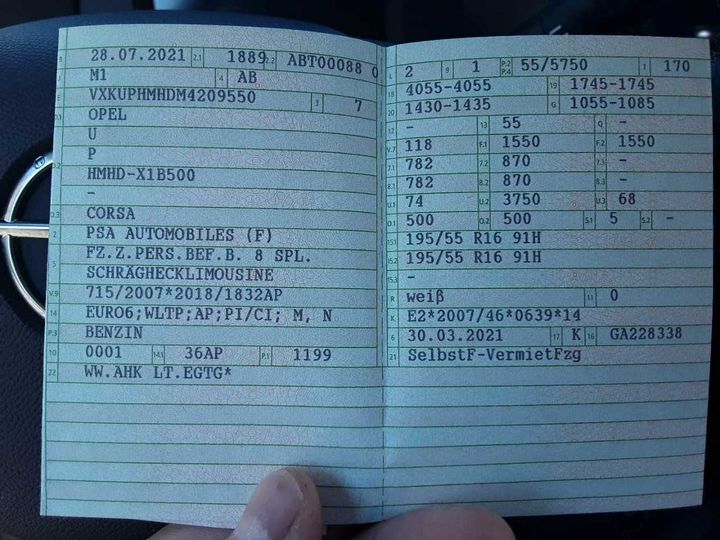 B 28.07.2021 2.1 1889 2.2 ABT00088 0
J M1 4 AB
E VXKUPHMHDM4209550 3 7
D.1 OPEL
U
P
D.2 HMHD-X1B500
-
D.3 CORSA
2 PSA AUTOMOBILES (F)
5 FZ.Z.PERS.BEF.B. 8 SPL.
SCHRÄGHECKLIMOUSINE
V.9 715/2007*2018/1832AP
14 EURO6;WLTP;AP;PI/CI; M, N
P.3 BENZIN
10 0001 14.1 36AP P.1 1199
22 WW.AHK LT.EGTG*
L 2 9 1 P.2 P.4 55/5750 T 170
18 4055-4055 19 1745-1745
20 1430-1435 G 1055-1085
12 - 13 55 Q -
V.7 118 F.1 1550 F.2 1550
7.1 782 7.2 870 7.3 -
8.1 782 8.2 870 8.3 -
U.1 74 U.2 3750 U.3 68
O.1 500 O.2 500 S.1 5 S.2 -
15.1 195/55 R16 91H
15.2 195/55 R16 91H
15.3 -
R weiß 11 0
K E2*2007/46*0639*14
6 30.03.2021 17 K 16 GA228338
21 SelbstF-VermietFzg